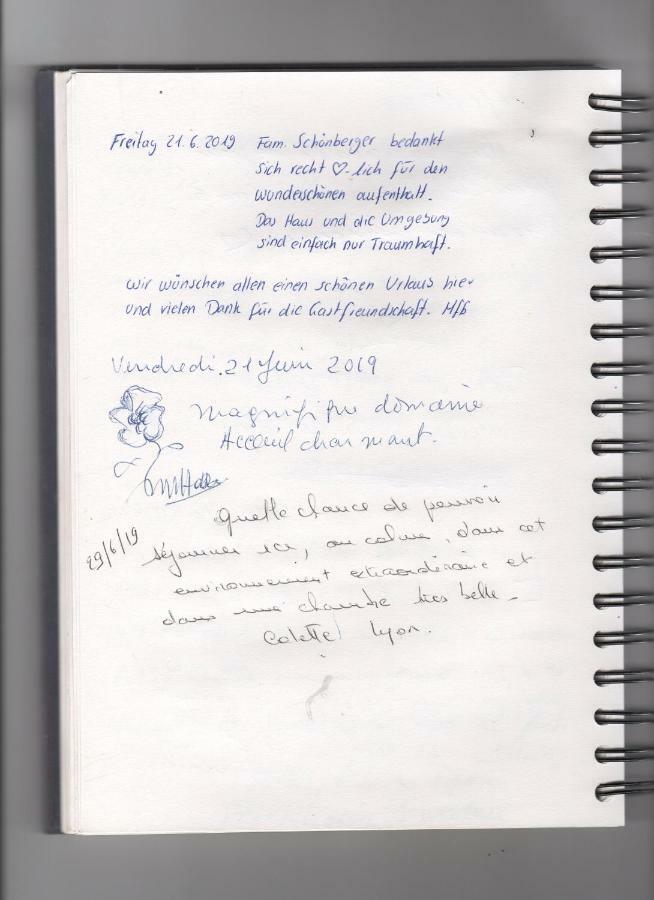 Freitag 21.6.2019 Fam. Schönberger bedankt
sich recht ♡-lich für den
wunderschönen aufenthalt.
Das Haus und die Umgebung
sind einfach nur Traumhaft.
Wir wünschen allen einen schönen Urlaub hier
und vielen Dank für die Gastfreundschaft. Mfg
Vendredi 21 Juin 2019
Magnifique domaine
Acceuil charmant.
29/6/19
Quelle chance de pouvoir
séjourner ici, au calme, dans cet
environnement extraordinaire et
dans une chambre très belle -
Colette Lyon.